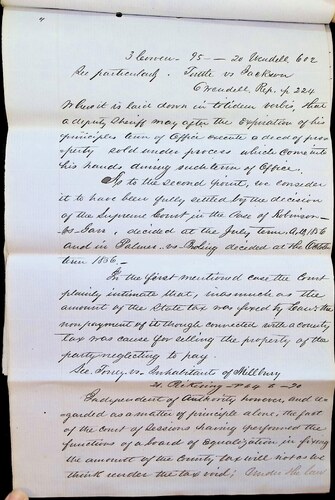 3 Cowen - 95 — 20 Wendell 602
See particularly. Tuttle vs Jackson
6 Wendell, Rep. p 224
Where it is laid down in totidem verbis, that
a deputy Sheriff may after the expiration of his
principles term of Office execute a deed of pro-
perty sold under process which came into
his hands during such term of Office.
As to the second point, we consider
it to have been fully settled by the decision
of the Supreme Court in the Case of Robinson
vs Gaar, decided at the July term A.D. 1856
and in Palmer vs Boling decided at the October
term 1856.—
In the first mentioned case the Court
plainly intimate that, inasmuch as the
amount of the State tax was fixed by Law, the
nonpayment of it though connected with a county
tax was cause for selling the property of the
party neglecting to pay.
See, Torrey vs Inhabitants of Millbury
21 Pickering - P 64 to 70
Independent of Authority however, and re-
garded as a matter of principle alone, the fact
of the Court of Sessions having performed the
functions of a board of Equalization in fixing
the amount of the County tax will not as we
think render the tax void; Under the Law